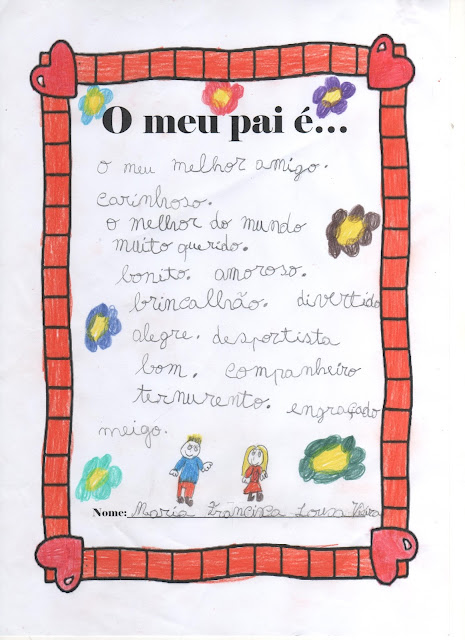 O meu pai é...
O meu melhor amigo.
carinhoso.
o melhor do mundo
muito querido.
bonito. amoroso.
brincalhão. divertido
alegre. desportista
bom. companheiro
ternurento. engraçado
meigo.
Nome: Maria Francisca